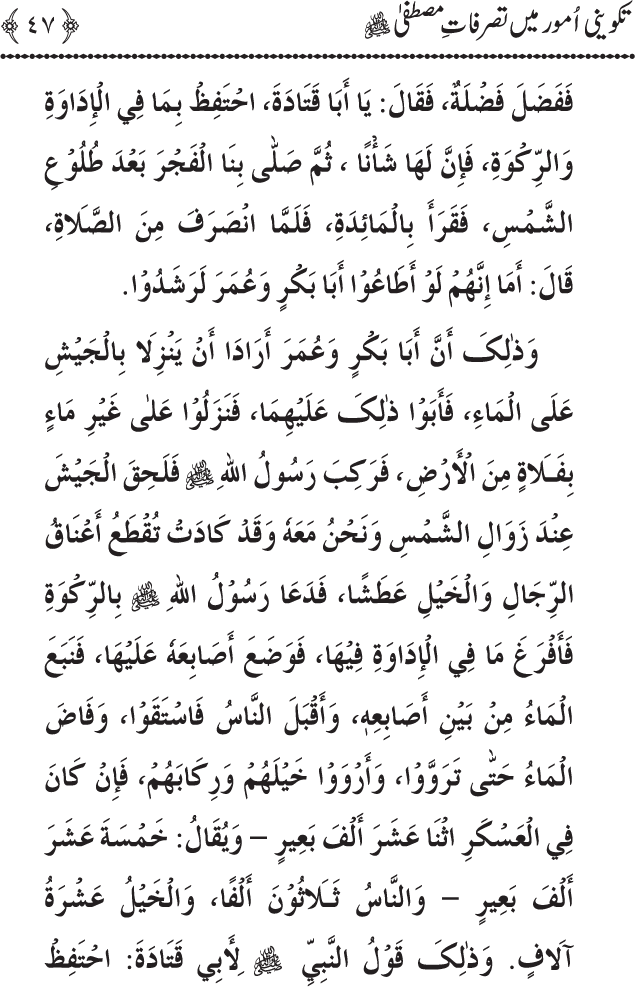 تکوینی اُمور میں تصرفاتِ مصطفیٰ ﷺ ﴿٤٧﴾
فَفَضَلَ فَضْلَةٌ، فَقَالَ: يَا أَبَا قَتَادَةَ، احْتَفِظْ بِمَا فِي الْإِدَاوَةِ
وَالرِّكْوَةِ، فَإِنَّ لَهَا شَأْنًا، ثُمَّ صَلّٰى بِنَا الْفَجْرَ بَعْدَ طُلُوْعِ
الشَّمْسِ، فَقَرَأَ بِالْمَائِدَةِ، فَلَمَّا انْصَرَفَ مِنَ الصَّلَاةِ،
قَالَ: أَمَا إِنَّهُمْ لَوْ أَطَاعُوْا أَبَا بَكْرٍ وَعُمَرَ لَرَشَدُوْا.
وَذٰلِکَ أَنَّ أَبَا بَكْرٍ وَعُمَرَ أَرَادَا أَنْ يَنْزِلَا بِالْجَيْشِ
عَلَى الْمَاءِ، فَأَبَوْا ذٰلِکَ عَلَيْهِمَا، فَنَزَلُوْا عَلٰى غَيْرِ مَاءٍ
بِفَلَاةٍ مِنَ الْأَرْضِ، فَرَكِبَ رَسُوْلُ اللهِ ﷺ فَلَحِقَ الْجَيْشَ
عِنْدَ زَوَالِ الشَّمْسِ وَنَحْنُ مَعَهٗ وَقَدْ كَادَتْ تُقْطَعُ أَعْنَاقُ
الرِّجَالِ وَالْخَيْلِ عَطَشًا، فَدَعَا رَسُوْلُ اللهِ ﷺ بِالرِّكْوَةِ
فَأَفْرَغَ مَا فِي الْإِدَاوَةِ فِيْهَا، فَوَضَعَ أَصَابِعَهٗ عَلَيْهَا، فَنَبَعَ
الْمَاءُ مِنْ بَيْنِ أَصَابِعِهٖ، وَأَقْبَلَ النَّاسُ فَاسْتَقَوْا، وَفَاضَ
الْمَاءُ حَتّٰى تَرَوَّوْا، وَأَرْوَوْا خَيْلَهُمْ وَرِكَابَهُمْ، فَإِنْ كَانَ
فِي الْعَسْكَرِ اثْنَا عَشَرَ أَلْفَ بَعِيرٍ – وَيُقَالُ: خَمْسَةَ عَشَرَ
أَلْفَ بَعِيرٍ – وَالنَّاسُ ثَلَاثُوْنَ أَلْفًا، وَالْخَيْلُ عَشْرَةُ
آلَافٍ. وَذٰلِکَ قَوْلُ النَّبِيِّ ﷺ لِأَبِي قَتَادَةَ: احْتَفِظْ